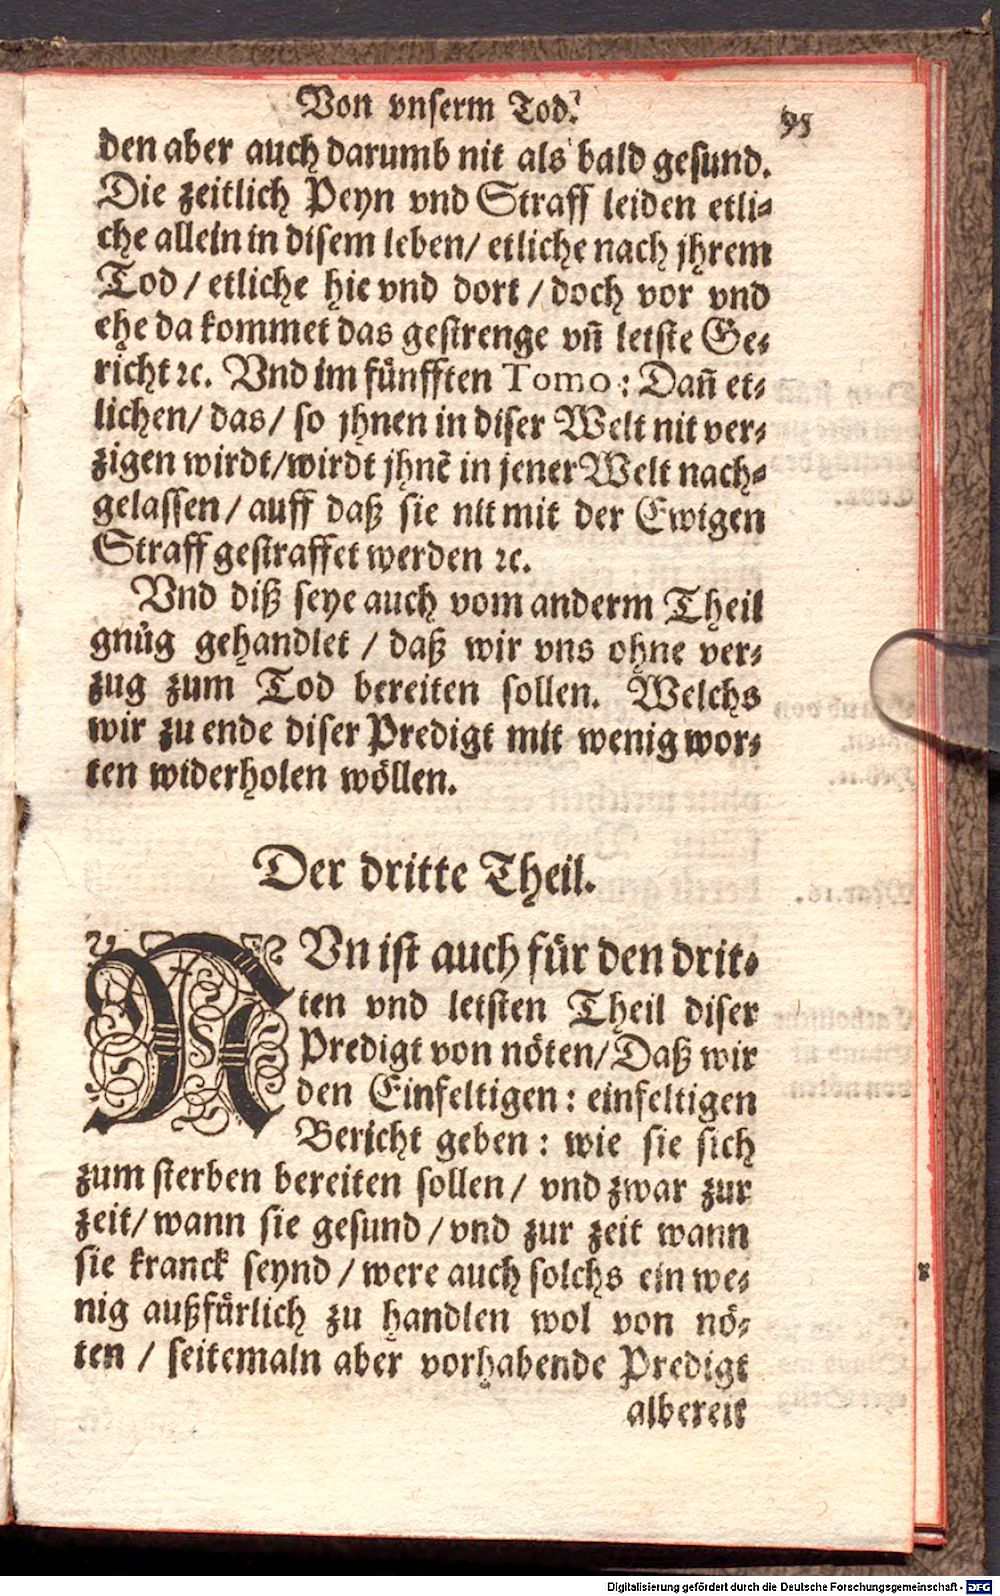 Von vnserm Tod. 95
den aber auch darumb nit als bald gesund.
Die zeitlich Peyn vnd Straff leiden etli⸗
che allein in disem leben/ etliche nach jhrem
Tod / etliche hie vnd dort / doch vor vnd
ehe da kommet das gestrenge vn̄ letste Ge⸗
richt ꝛc. Vnd im fünfften Tomo: Dan̄ et⸗
lichen/ das/ so jhnen in diser Welt nit ver⸗
zigen wirdt/wirdt jhnē in jener Welt nach⸗
gelassen / auff daß sie nit mit der Ewigen
Straff gestraffet werden ꝛc.
Vnd diß seye auch vom anderm Theil
gnůg gehandlet / daß wir vns ohne ver⸗
zug zum Tod bereiten sollen. Welchs
wir zu ende diser Predigt mit wenig wor⸗
ten widerholen wöllen.
Der dritte Theil.
NVn ist auch für den drit⸗
ten vnd letsten Theil diser
Predigt von nöten/ Daß wir
den Einfeltigen: einfeltigen
Bericht geben: wie sie sich
zum sterben bereiten sollen / vnd zwar zur
zeit/ wann sie gesund / vnd zur zeit wann
sie kranck seynd / were auch solchs ein we⸗
nig außfürlich zu handlen wol von nö⸗
ten / seitemaln aber vorhabende Predigt
albereit
Digitalisierung gefördert durch die Deutsche Forschungsgemeinschaft - DFG